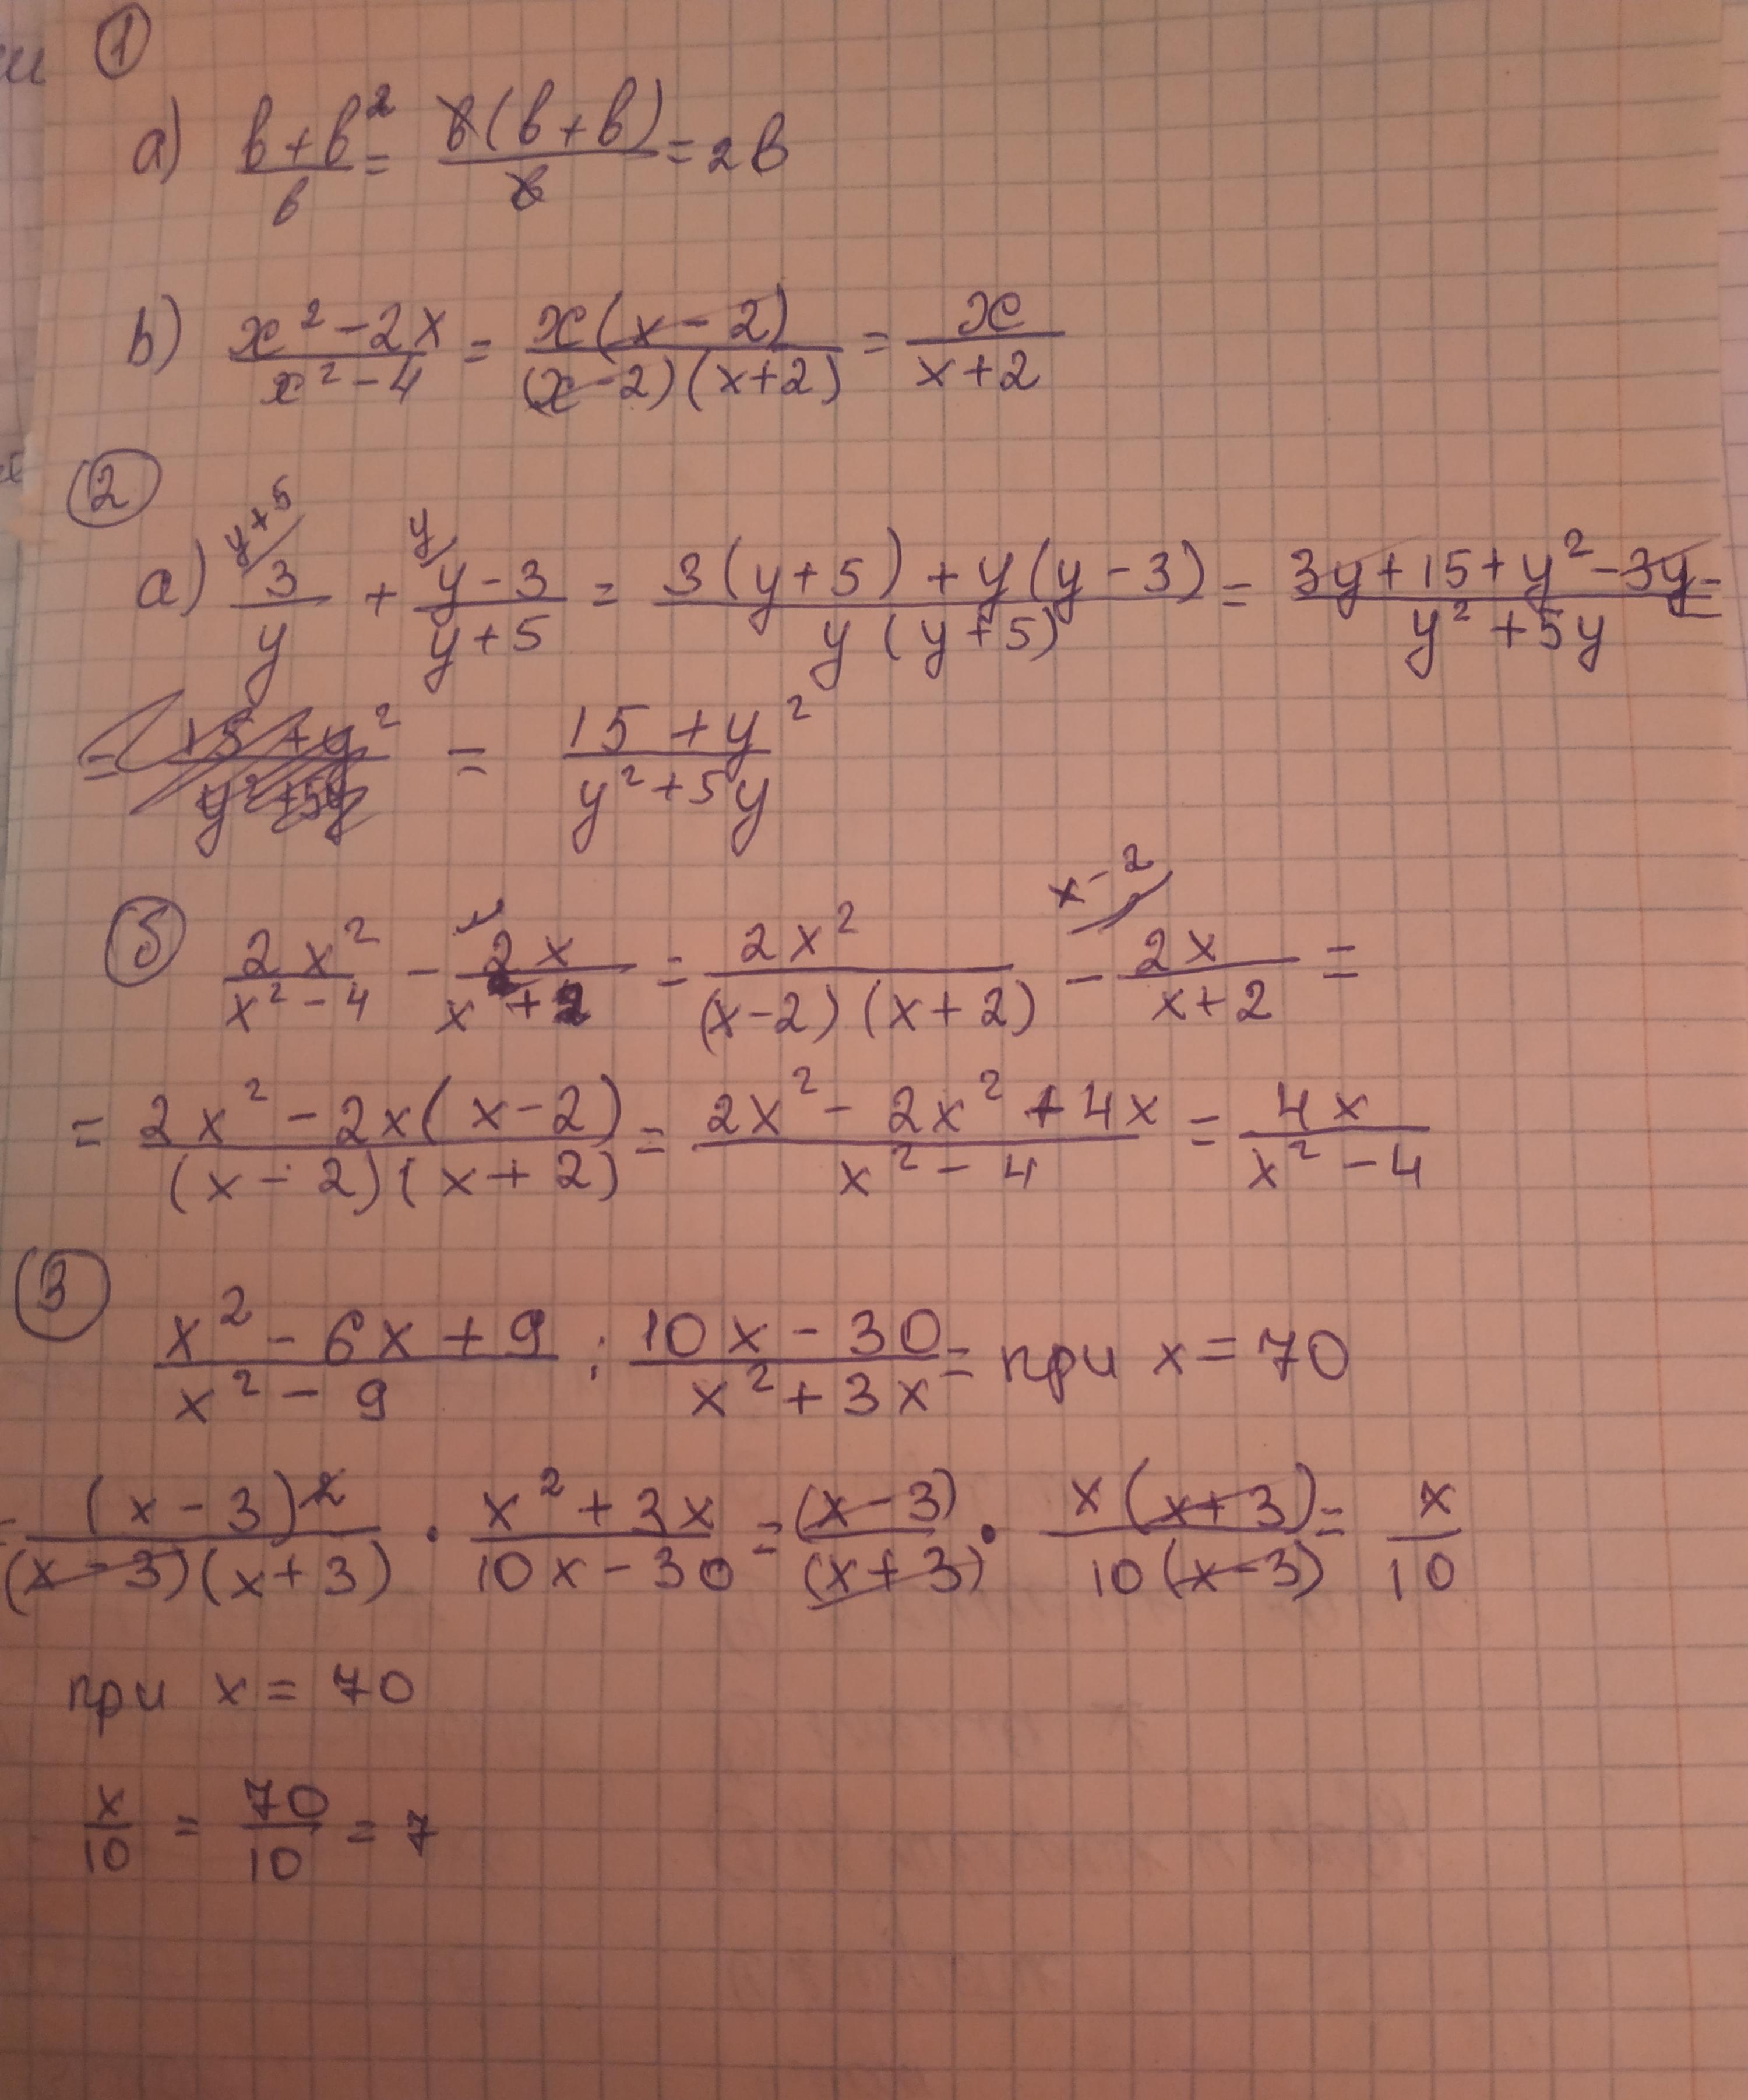 ①
а) (b+b²)/b = b(b+b)/b = 2b
b) (x²-2x)/(x²-4) = x(x-2)/((x-2)(x+2)) = x/(x+2)
②
а) y+5/ 3/y + y/ (y-3)/(y+5) = (3(y+5)+y(y-3))/(y(y+5)) = (3y+15+y²-3y)/(y²+5y) =
= (15+y²)/(y²+5y) = (15+y²)/(y²+5y)
б 2x²/(x²-4) - 2x/(x+2) = 2x²/((x-2)(x+2)) - x-2/ 2x/(x+2) =
= (2x²-2x(x-2))/((x-2)(x+2)) = (2x²-2x²+4x)/(x²-4) = 4x/(x²-4)
③
(x²-6x+9)/(x²-9) : (10x-30)/(x²+3x) = при x=70
= (x-3)²/((x-3)(x+3)) · (x²+3x)/(10x-30) = (x-3)/(x+3) · x(x+3)/(10(x-3)) = x/10
при x = 70
x/10 = 70/10 = 7